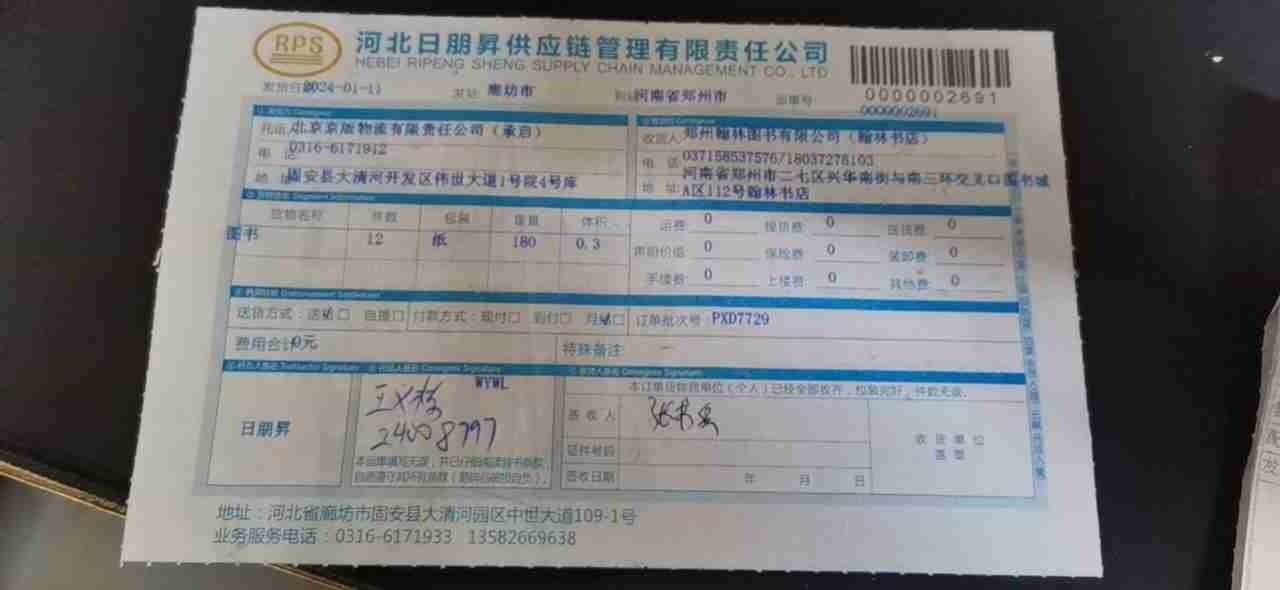 RPS 河北日朋昇供应链管理有限责任公司
HEBEI RIPENG SHENG SUPPLY CHAIN MANAGEMENT CO., LTD
0000002691
发货日 2024-01-11 发站: 廊坊市 河南省郑州市 运单号
0000002691
托运 北京京版物流有限责任公司（承启）
电 话 0316-6171912
地 址 固安县大清河开发区伟世大道1号院4号库
收货人 郑州翰林图书有限公司（翰林书店）
电 话 037158537576/18037278103
地 址: 河南省郑州市二七区兴华南街与南三环交叉口图书城
A区112号翰林书店
货物名称 件数 包装 重量 体积
图书 12 纸 180 0.3
运费: 0 提货费: 0 送货费: 0
声明价值: 0 保险费: 0 装卸费: 0
手续费: 0 上楼费: 0 其他费: 0
送货方式: 送 自提 付款方式: 现付 到付 月结 订单批次号: PXD7729
费用合计 0元 特殊备注
WYWL
日朋昇
24008797
本运单填写无误，并已仔细阅读背书条款，
自愿遵守其所有条款
本订单货物我单位（个人）已经全部收齐，包装完好，件数无误。
签收人
证件号码
签收日期 年 月 日
收货单位
盖章
地址：河北省廊坊市固安县大清河园区中世大道109-1号
业务服务电话：0316-6171933 13582669638